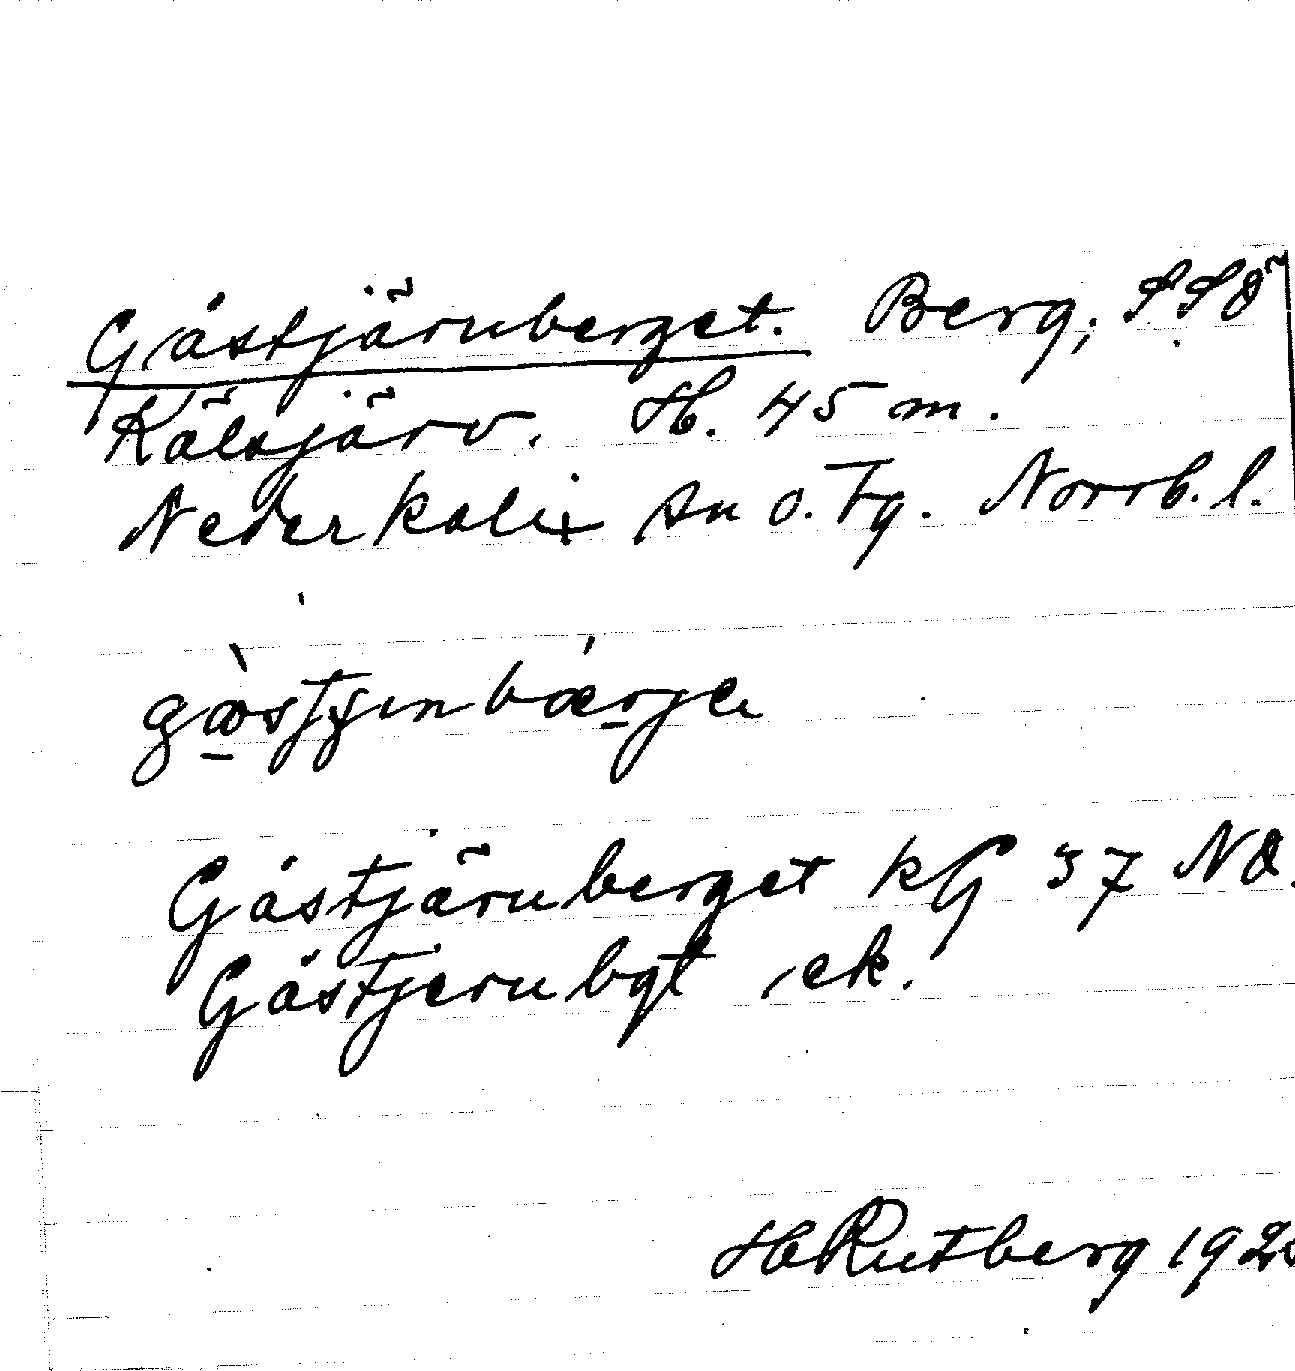 Gåstjärnberget. Berg, SSÖ
Kälsjärv. H. 45 m.
Nederkalix sn ö. Tg. Norrb. l.
Gåstjärnberget KG 37 NO.
Gåstjernbgt ek.
H Rutberg 192